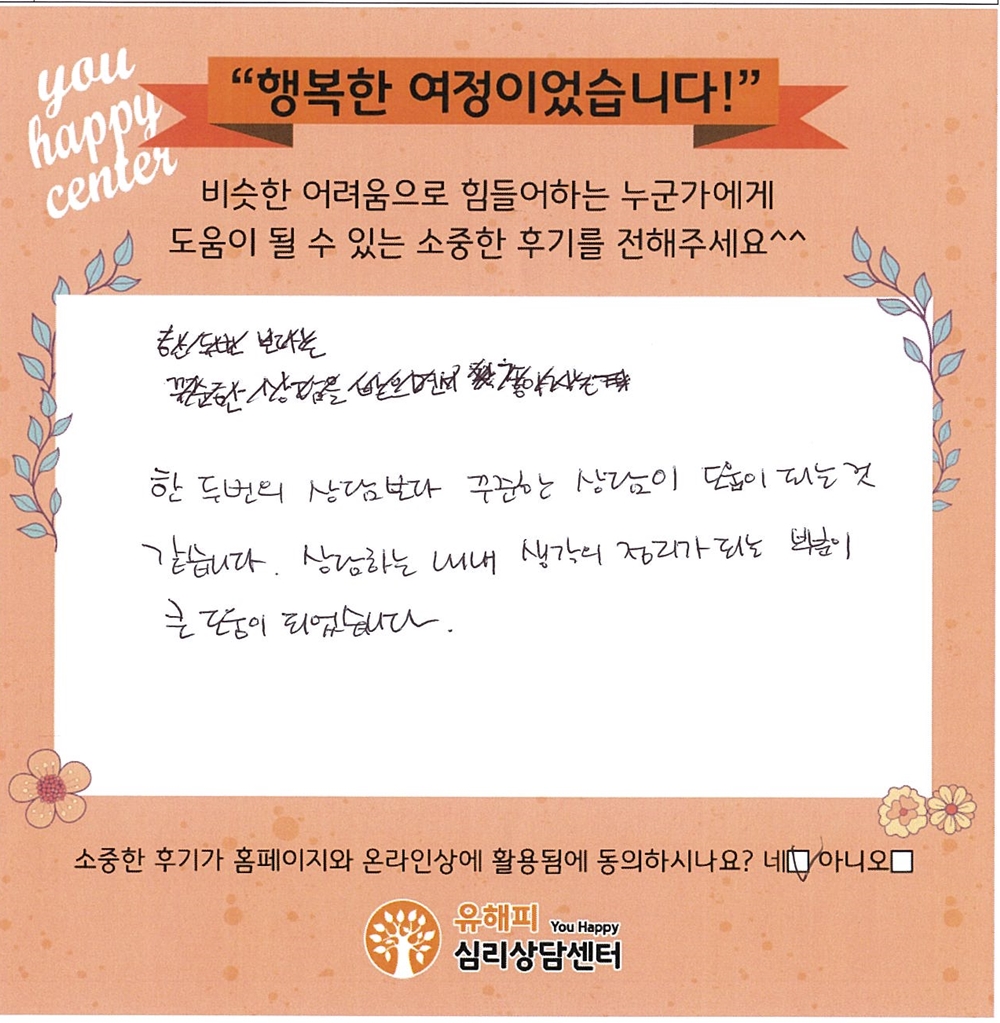 you
happy
center
“행복한 여정이었습니다!”
비슷한 어려움으로 힘들어하는 누군가에게
도움이 될 수 있는 소중한 후기를 전해주세요^^
한 두번 보다는
꾸준한 상담을 받으면서
한 두번의 상담보다 꾸준한 상담이 도움이 되는 것
같습니다. 상담하는 내내 생각의 정리가 되는 부분이
큰 도움이 되었습니다.
소중한 후기가 홈페이지와 온라인상에 활용됨에 동의하시나요? 네 아니오
유해피 You Happy
심리상담센터